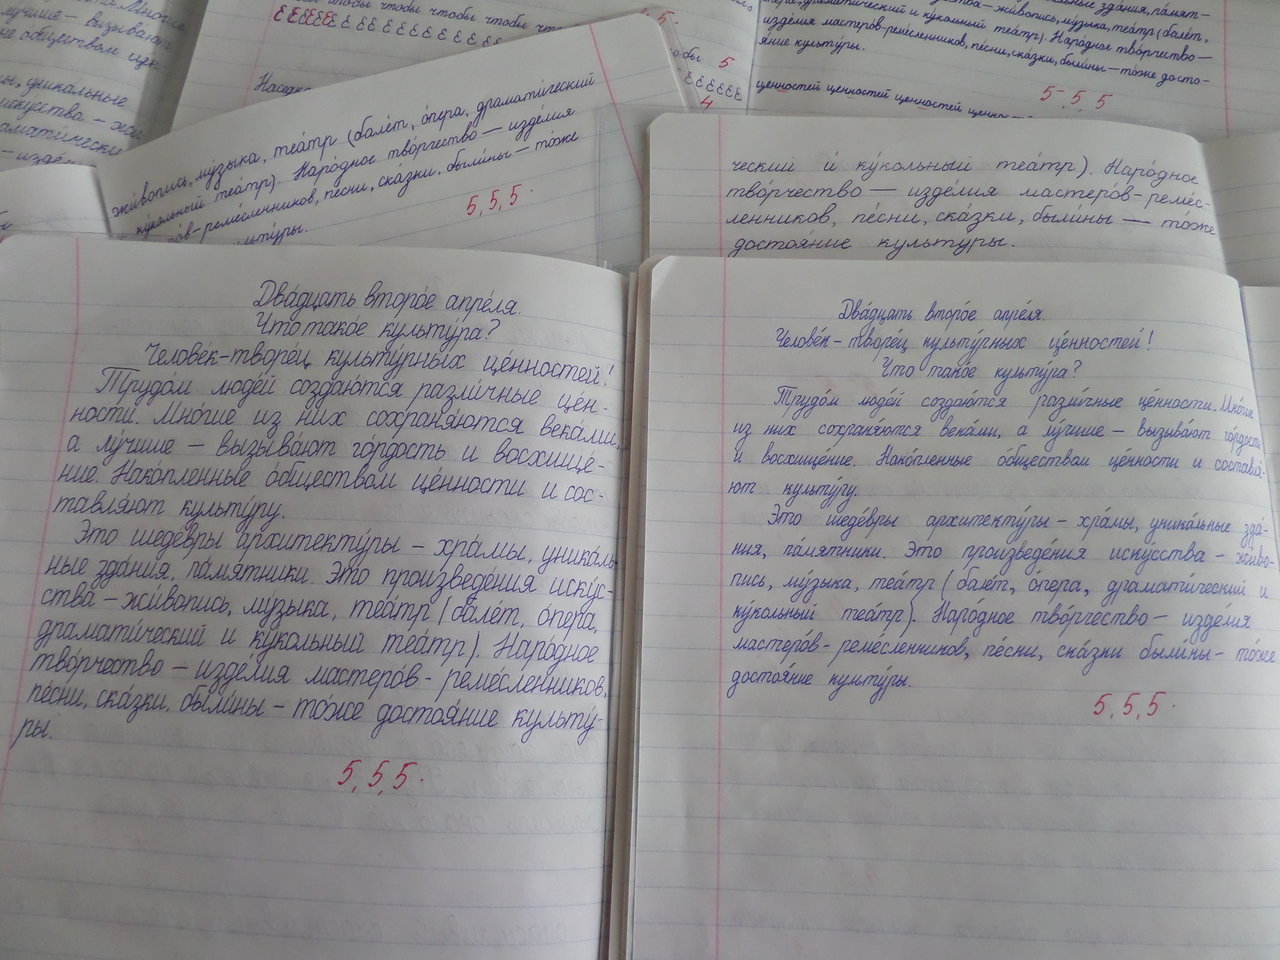 лучше — вызывают
ные обществом цен
ы, уникальные
искусства — жи
чтобы чтобы чтобы чтобы
живопись, му́зыка, теа́тр (бале́т, о́пера, драмати́ческий
ку́кольный теа́тр). Наро́дное тво́рчество — изде́лия
ро́в-реме́сленников, пе́сни, ска́зки, были́ны — то́же
культу́ры.
5, 5, 5.
5
4
драмати́ческий и ку́кольный теа́тр). Наро́дное тво́рчество —
изде́лия мастеро́в-реме́сленников, пе́сни, ска́зки, были́ны — то́же досто-
я́ние культу́ры.
5, 5, 5
ценностей ценностей ценностей
ческий и́ ку́кольный теа́тр). Наро́дное
тво́рчество — изде́лия мастеро́в-реме́с-
ленников, пе́сни, ска́зки, были́ны — то́же
достоя́ние культу́ры.
Два́дцать второ́е апре́ля.
Что тако́е культу́ра?
Челове́к-творе́ц культу́рных це́нностей!
Трудо́м люде́й создаю́тся разли́чные це́н-
ности. Мно́гие из них сохраня́ются века́ми,
а лу́чшие — вызыва́ют го́рдость и восхище́-
ние. Нако́пленные о́бществом це́нности и сос-
тавля́ют культу́ру.
Это шеде́вры архитекту́ры — хра́мы, уника́ль-
ные зда́ния, па́мятники. Это произведе́ния иску́с-
ства — жи́вопись, му́зыка, теа́тр (бале́т, о́пера,
драмати́ческий и ку́кольный теа́тр). Наро́дное
тво́рчество — изде́лия мастеро́в-реме́сленников,
пе́сни, ска́зки, были́ны — то́же достоя́ние культу́-
ры.
5, 5, 5.
Два́дцать второ́е апре́ля.
Челове́к-творе́ц культу́рных це́нностей!
Что тако́е культу́ра?
Трудо́м люде́й создаю́тся разли́чные це́нности. Мно́гие
из них сохраня́ются века́ми, а лу́чшие — вызыва́ют го́рдость
и восхище́ние. Нако́пленные о́бществом це́нности и составля́-
ют культу́ру.
Это шеде́вры архитекту́ры — хра́мы, уника́льные зда́-
ния, па́мятники. Это произведе́ния искусства — жи́во-
пись, му́зыка, теа́тр (бале́т, о́пера, драмати́ческий и
ку́кольный теа́тр). Наро́дное тво́рчество — изде́лия
мастеро́в-реме́сленников, пе́сни, ска́зки были́ны — то́же
достоя́ние культу́ры.
5, 5, 5.